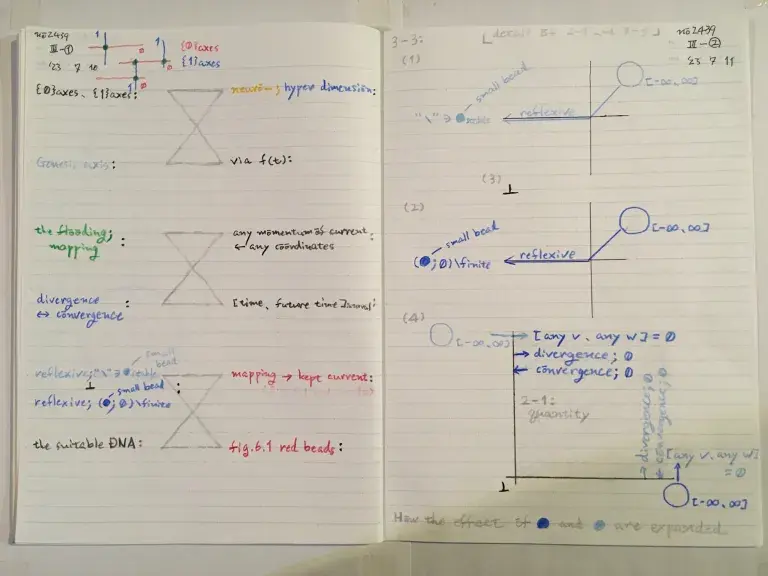 no2439
III-①
'23 7 10
{0}axes
{1}axes
{0}axes、{1}axes:
neuron; hyper dimension:
Genesis axis:
via f(t):
the flooding;
mapping :
any momentum of current
← any coordinates :
divergence
↔ convergence :
[time, future time]
small
bead
reflexive; "\" ∋
⊥
small bead
reflexive; (●; 0)\finite :
mapping → kept current:
the suitable DNA:
fig.6.1 red beads:
3-3:
no2439
III-②
'23 7 11
(1)
small bead
"\" ∋
reflexive
[-∞,∞]
(3)
⊥
(2)
small bead
(●; 0)\finite
reflexive
[-∞,∞]
(4)
[-∞,∞]
[any v、any w] = 0
→ divergence; 0
← convergence; 0
2-1:
quantity
divergence; 0
convergence; 0
[any v、any w]
= 0
⊥
[-∞,∞]
How the effect of ● and ● are expanded